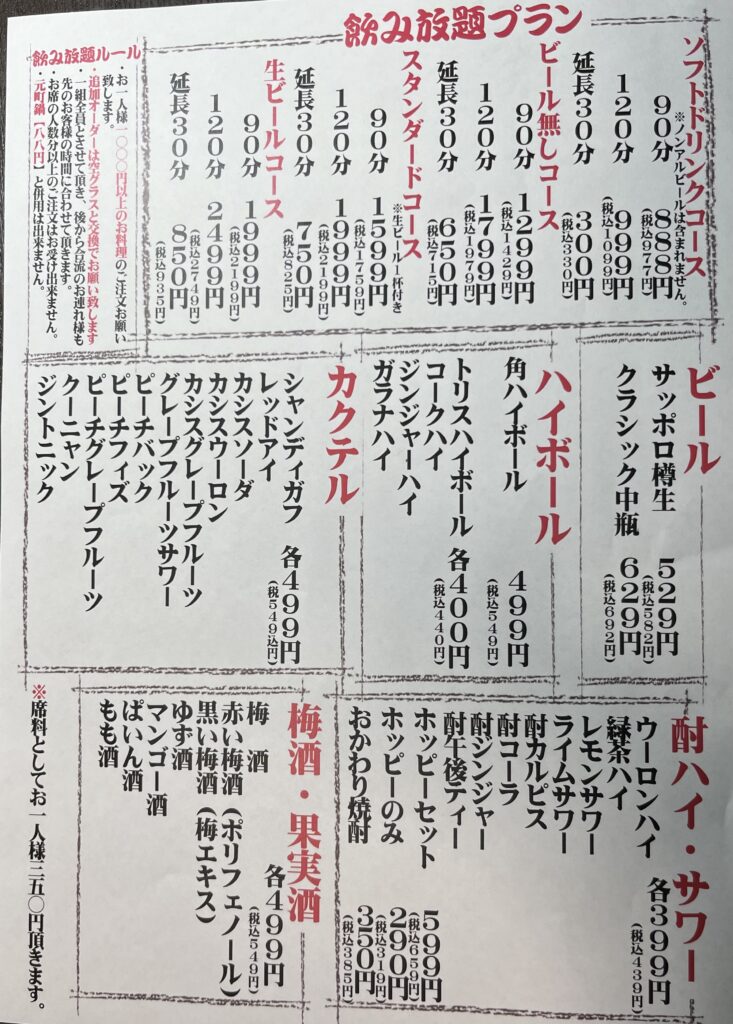 飲み放題プラン
ソフトドリンクコース
※ノンアルビールは含まれません。
90分 888円
(税込977円)
120分 999円
(税込1099円)
延長30分 300円
(税込330円)
ビール無しコース
90分 1299円
(税込1429円)
120分 1799円
(税込1979円)
延長30分 650円
(税込715円)
スタンダードコース
※生ビール1杯付き
90分 1599円
(税込1759円)
120分 1999円
(税込2199円)
延長30分 750円
(税込825円)
生ビールコース
90分 1999円
(税込2199円)
120分 2499円
(税込2749円)
延長30分 850円
(税込935円)
飲み放題ルール
・お一人様一〇〇〇円以上のお料理のご注文お願い
致します。
・追加オーダーは空グラスと交換でお願い致します
・一組全員とさせて頂き、後から合流のお連れ様も
先のお客様の時間に合わせて頂きます。
・お席の人数分以上のご注文はお受け出来ません。
・元町鍋【八八円】と併用は出来ません。
ビール
サッポロ樽生 529円
(税込582円)
クラシック中瓶 629円
(税込692円)
ハイボール
角ハイボール 499円
(税込549円)
トリスハイボール 各400円
(税込440円)
コークハイ
ジンジャーハイ
ガラナハイ
カクテル
シャンディガフ 各499円
(税549込円)
レッドアイ
カシスソーダ
カシスウーロン
カシスグレープフルーツ
グレープフルーツサワー
ピーチバック
ピーチフィズ
ピーチグレープフルーツ
クーニャン
ジントニック
酎ハイ・サワー
ウーロンハイ 各399円
(税込439円)
緑茶ハイ
レモンサワー
ライムサワー
酎カルピス
酎コーラ
酎ジンジャー
酎午後ティー
ホッピーセット 599円
(税込659円)
ホッピーのみ 290円
(税込319円)
おかわり焼酎 350円
(税込385円)
梅酒・果実酒
梅酒 各499円
(税込549円)
赤い梅酒(ポリフェノール)
黒い梅酒(梅エキス)
ゆず酒
マンゴー酒
ぱいん酒
もも酒
※席料としてお一人様三五〇円頂きます。